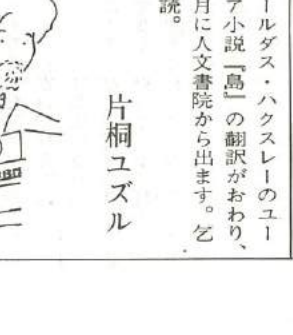 ールダス・ハクスレーのユー
ア小説『島』の翻訳がおわり、
月に人文書院から出ます。乞
読。
片桐ユズル